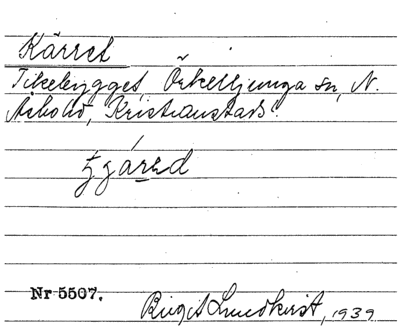 Kärret
Tikebygget, Örkelljunga sn, N.
Åsbo hd, Kristianstads l.
Nr 5507.
Birgit Lundkvist, 1939